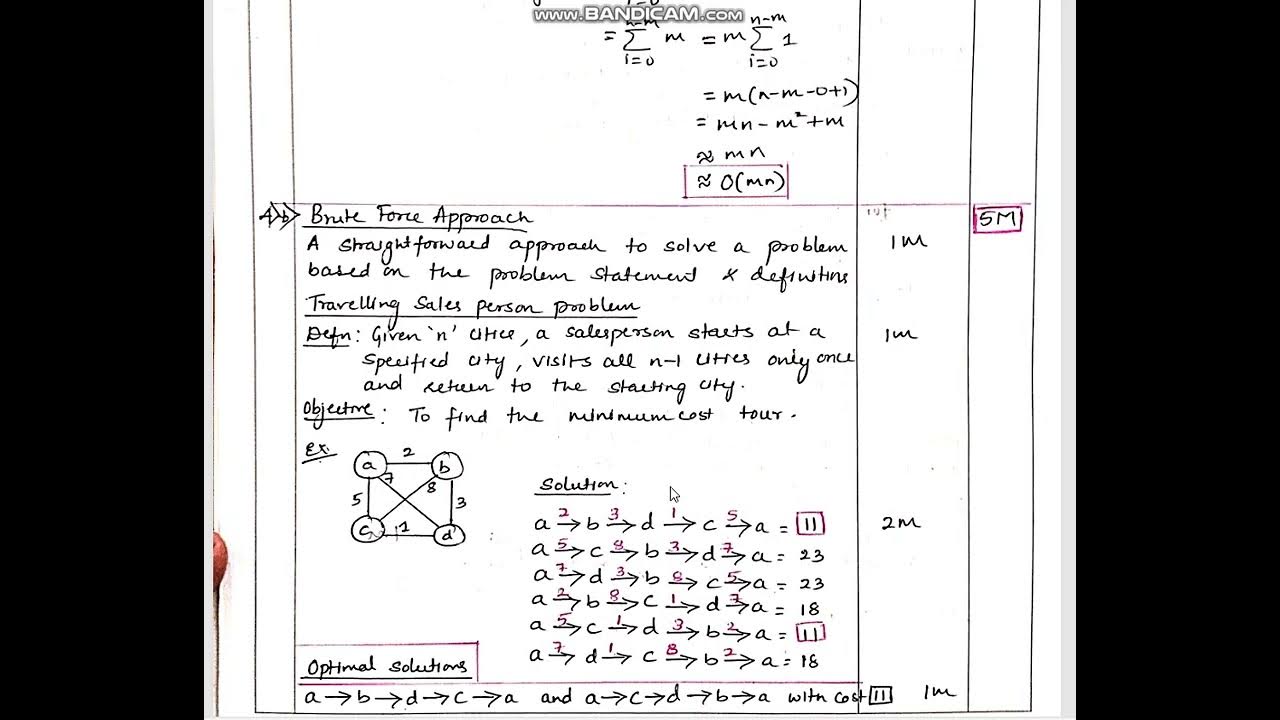 www.BANDICAM.com
i=0
n-m n-m
= Σ m = m Σ 1
i=0 i=0
= m(n-m-0+1)
= mn - m² + m
≈ mn
≈ O(mn)
4>b> Brute Force Approach 5M
A straightforward approach to solve a problem 1M
based on the problem statement & definitions
Travelling sales person problem
Defn: Given 'n' cities, a salesperson starts at a 1M
specified city, visits all n-1 cities only once
and return to the starting city.
Objective: To find the minimum cost tour.
Ex.
a 2 b
7 8
5 3
c 1 d
Solution:
a 2→ b 3→ d 1→ c 5→ a = 11 2M
a 5→ c 8→ b 3→ d 7→ a = 23
a 7→ d 3→ b 8→ c 5→ a = 23
a 2→ b 8→ c 1→ d 7→ a = 18
a 5→ c 1→ d 3→ b 2→ a = 11
a 7→ d 1→ c 8→ b 2→ a = 18
Optimal solutions
a → b → d → c → a and a → c → d → b → a with cost 11 1M